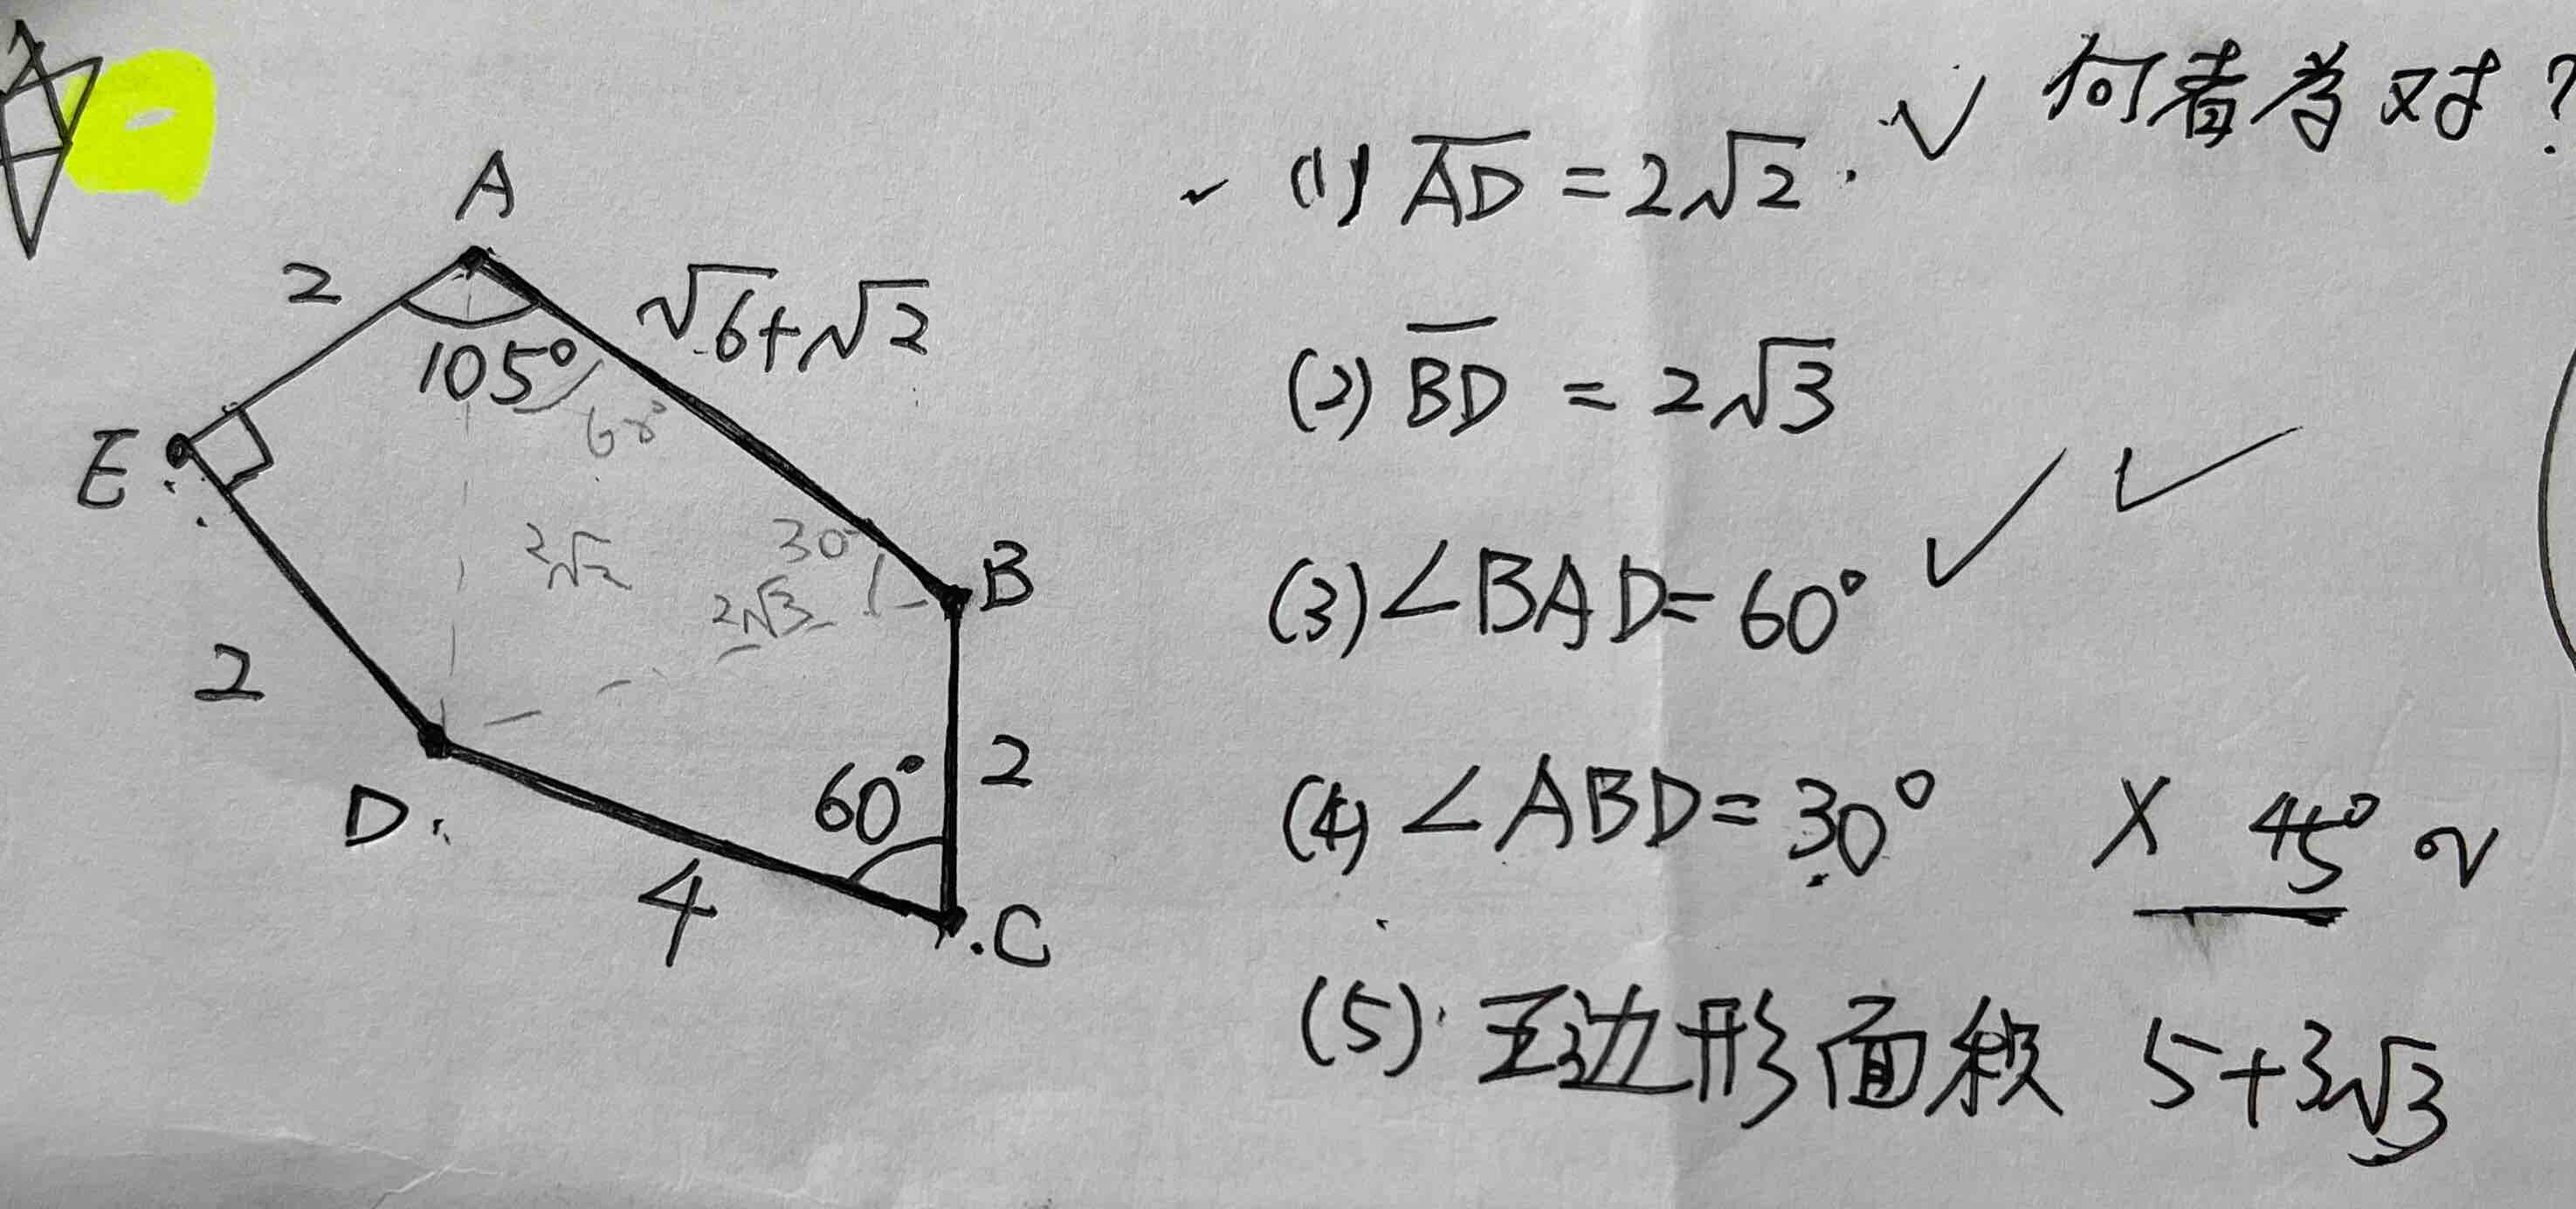 何者为对?
(1) AD = 2√2.
(2) BD = 2√3
(3) ∠BAD = 60°
(4) ∠ABD = 30° X 45°
(5) 五边形面积 5+3√3
A
2
√6+√2
105°
60°
E
30°
B
2√2
2√3
2
60°
2
D
4
C